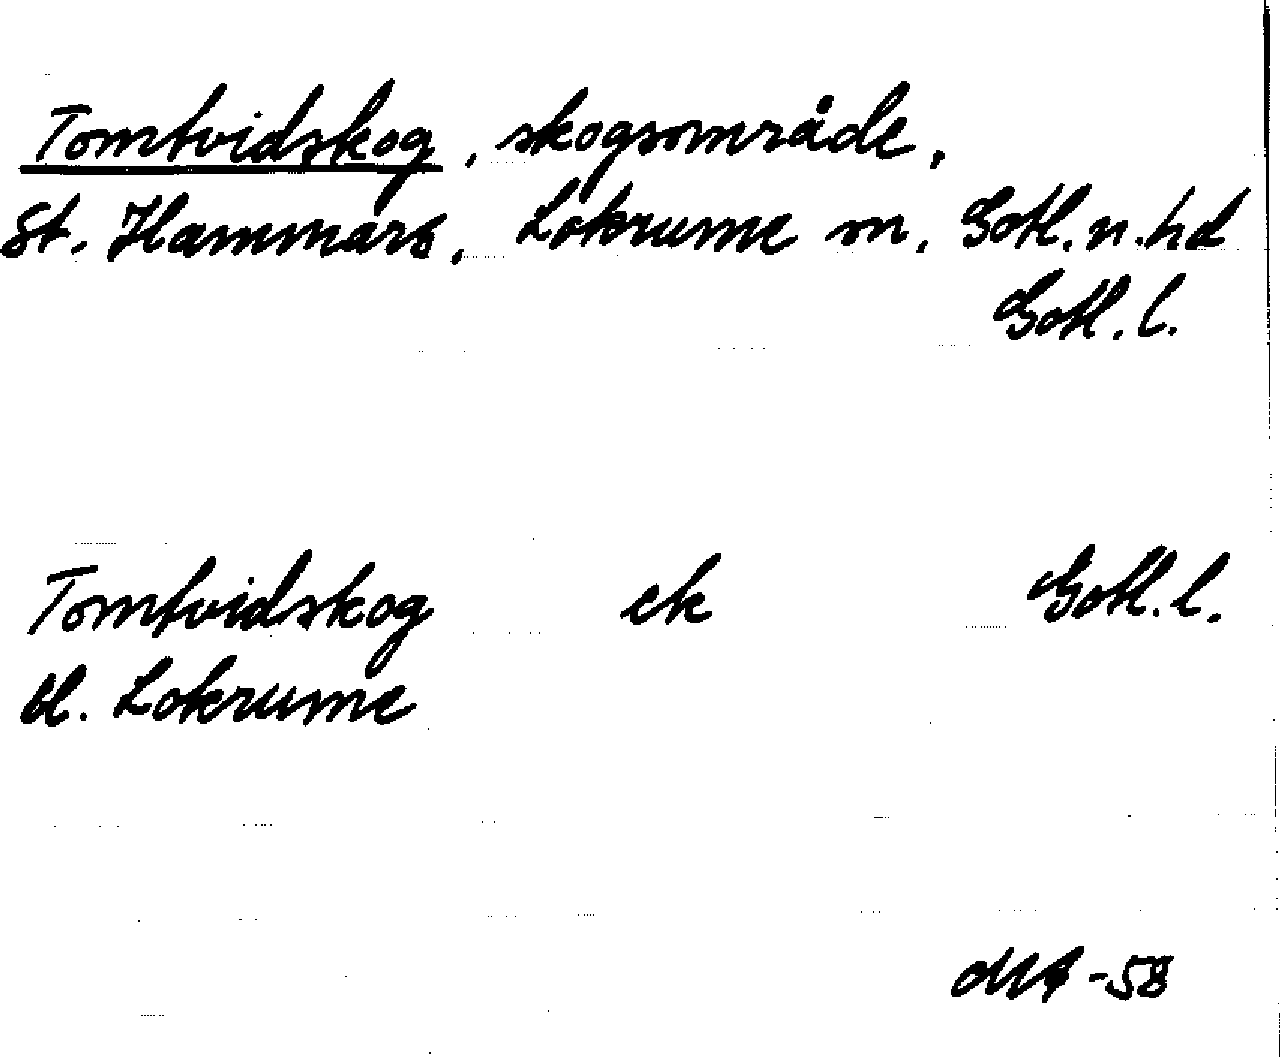 Tomtvidskog, skogsområde,
St. Hammars, Lokrume sn, Gotl. n. hd
Gotl. l.
Tomtvidskog ek Gotl. l.
bl. Lokrume
-58